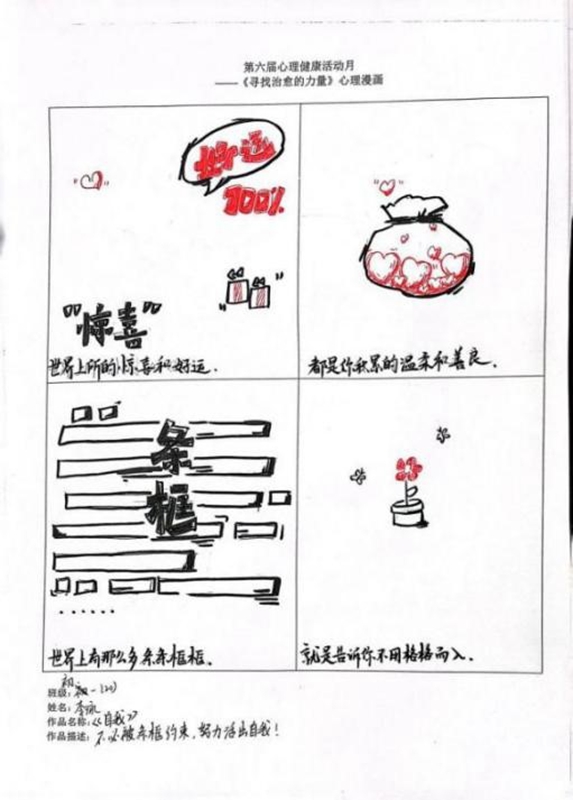 第六届心理健康活动月
——《寻找治愈的力量》心理漫画
好运
100%
"惊喜"
世界上所的惊喜和好运.
都是你积累的温柔和善良.
条
框
......
世界上有那么多条条框框.
就是告诉你不用格格而入.
班级:初一(20)
姓名:李
作品名称:《自我》
作品描述:不必被条框约束,努力活出自我!